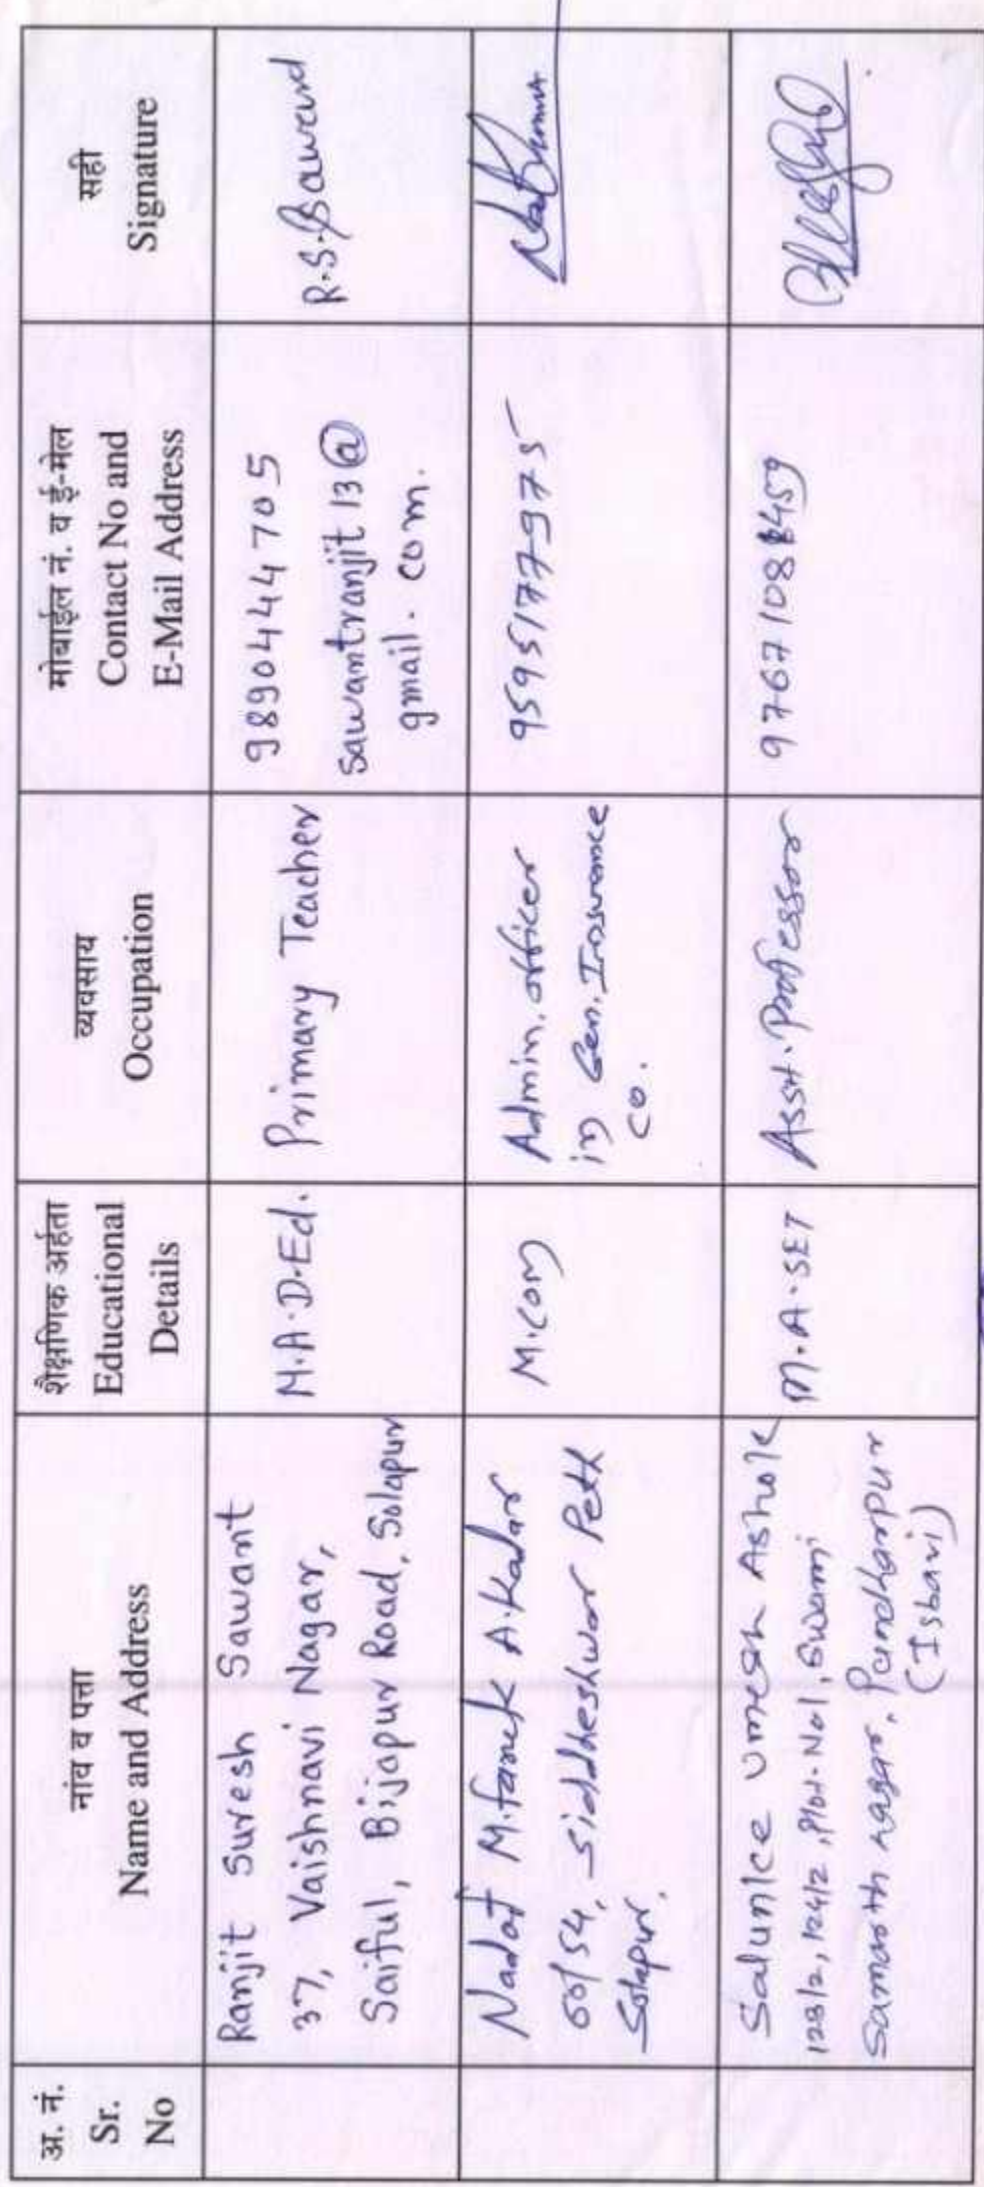 अ. नं.
Sr.
No
नांव व पत्ता
Name and Address
शैक्षणिक अर्हता
Educational
Details
व्यवसाय
Occupation
मोबाईल नं. व ई-मेल
Contact No and
E-Mail Address
सही
Signature
Ranjit Suresh Sawant
37, Vaishnavi Nagar,
Saiful, Bijapur Road, Solapur
M.A.D.Ed.
Primary Teacher
9890444705
sawantranjit13@
gmail.com.
R.S.Sawant
Nadaf M.faruk A.Kadar
Siddheshwar Peth
Solapur.
M.com
Admin. officer
in Gen. Insurance
co.
9595177975
Salunke Umesh Ashok
123/2, 124/2, Plot-No1, Swami
Samarth nagar, Pandharpur
(Isbavi)
M.A.SET
Asst. Professor
97671088459